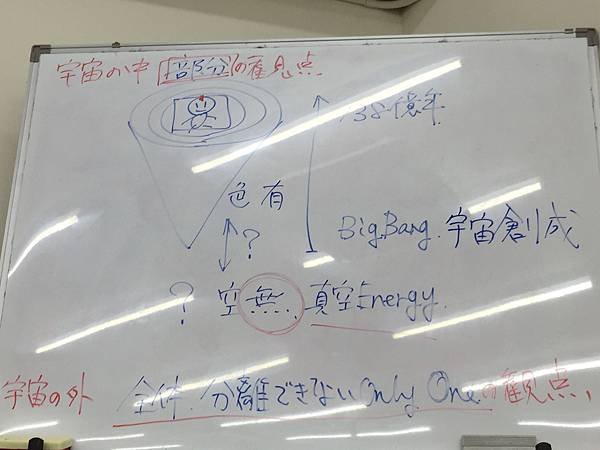 宇宙の中 部分の観点
138億年
色 有
?
BigBang 宇宙創成
? 空 無. 真空Energy.
宇宙の外 全体. 分離できないOnly Oneの観点,